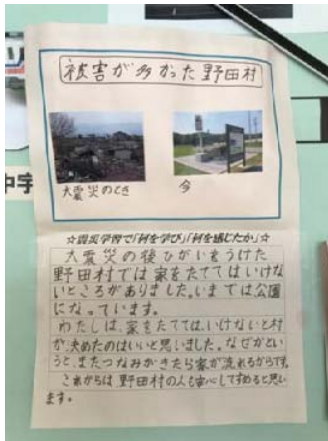 被害が多かった野田村
大震災のとき
今
中字
☆震災学習で「何を学び」「何を感じたか」☆
大震災の後ひがいをうけた
野田村では家をたててはいけな
いところがありました。いまでは公園
になっています。
わたしは、家をたててはいけないと村
が決めたのはいいと思いました。なぜかとい
うと、またつなみがきたら家が流れるからです。
これからは野田村の人も安心してすめると思い
ます。